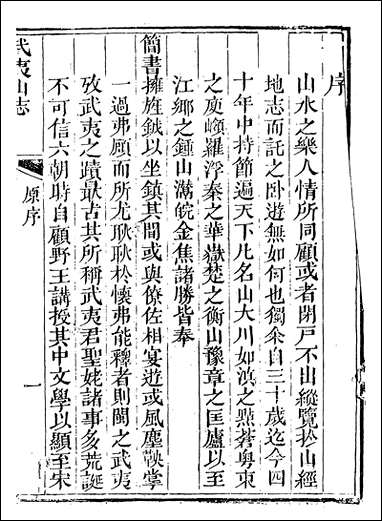 序
山水之樂人情所同顧或者閉戸不出縱覽於山經
地志而託之卧遊無如何也獨余自三十歲迄今四
十年中持節遍天下凡名山大川如滇之㸃蒼粤東
之庾嶺羅浮秦之華嶽楚之衡山豫章之匡廬以至
江郷之鍾山灊皖金焦諸勝皆奉
簡書擁旌鉞以坐鎮其間或與僚佐相宴遊或風塵鞅掌
一過弗顧而所尤耿耿於懷弗能釋者則閩之武夷
攷武夷之蹟最古其所稱武夷君聖姥諸事多荒誕
不可信六朝時自顧野王講授其中文學以顯至宋
武夷山志
原序
一